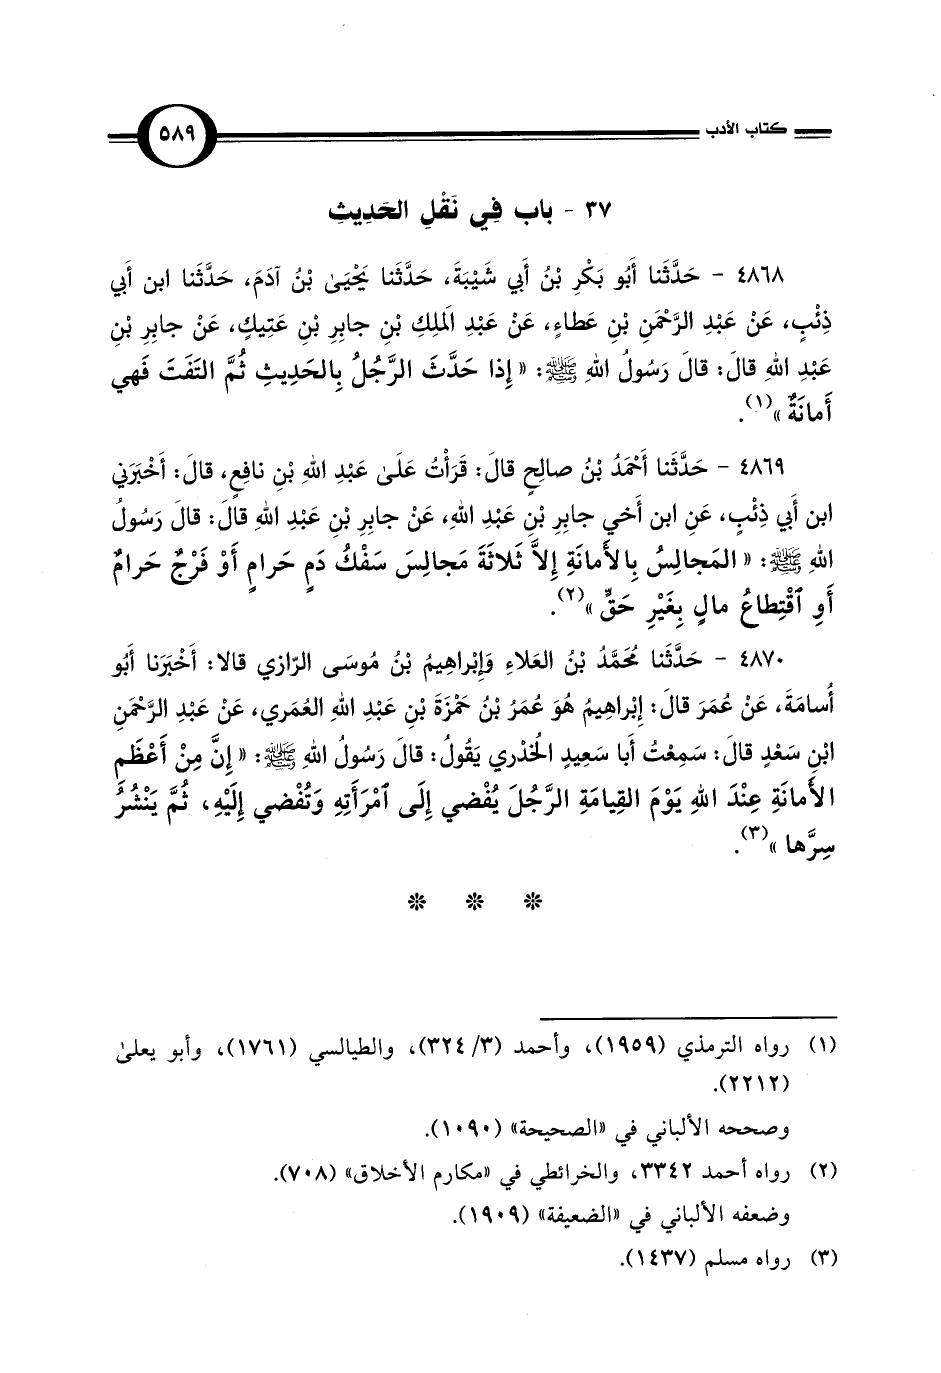 كتاب الأدب ٥٨٩
٣٧ - باب فِي نَقْلِ الحَدِيثِ
٤٨٦٨ - حَدَّثَنا أَبُو بَكْرِ بْنُ أَبي شَيْبَةَ، حَدَّثَنا يَحْيَىٰ بْنُ آدَمَ، حَدَّثَنا ابن أَبي
ذِئْبٍ، عَنْ عَبْدِ الرَّحْمَنِ بْنِ عَطاءٍ، عَنْ عَبْدِ المَلِكِ بْنِ جابِرِ بْنِ عَتِيكٍ، عَنْ جابِرِ بْنِ
عَبْدِ اللهِ قالَ: قالَ رَسُولُ اللهِ ﷺ: « إِذا حَدَّثَ الرَّجُلُ بِالحَدِيثِ ثُمَّ التَفَتَ فَهي
أَمانَةٌ »(١).
٤٨٦٩ - حَدَّثَنا أَحْمَدُ بْنُ صالِحٍ قالَ: قَرَأْتُ عَلَىٰ عَبْدِ اللهِ بْنِ نافِعٍ، قالَ: أَخْبَرَني
ابن أَبي ذِئْبٍ، عَنِ ابن أَخي جابِرِ بْنِ عَبْدِ اللهِ، عَنْ جابِرِ بْنِ عَبْدِ اللهِ قالَ: قالَ رَسُولُ
اللهِ ﷺ: « المَجالِسُ بِالأَمانَةِ إِلاَّ ثَلاثَةَ مَجالِسَ سَفْكُ دَمٍ حَرامٍ أَوْ فَرْجٌ حَرامٌ
أَوِ ٱقْتِطاعُ مالٍ بِغَيْرِ حَقٍّ »(٢).
٤٨٧٠ - حَدَّثَنا مُحَمَّدُ بْنُ العَلاءِ وَإِبْراهِيمُ بْنُ مُوسَى الرّازي قالا: أَخْبَرَنا أَبُو
أُسامَةَ، عَنْ عُمَرَ قالَ: إِبْراهِيمُ هُوَ عُمَرُ بْنُ حَمْزَةَ بْنِ عَبْدِ اللهِ العُمَري، عَنْ عَبْدِ الرَّحْمَنِ
ابْنِ سَعْدٍ قالَ: سَمِعْتُ أَبا سَعِيدٍ الخُدْري يَقُولُ: قالَ رَسُولُ اللهِ ﷺ: « إِنَّ مِنْ أَعْظَمِ
الأَمانَةِ عِنْدَ اللهِ يَوْمَ القِيامَةِ الرَّجُلَ يُفْضي إِلَى ٱمْرَأَتِهِ وَتُفْضي إِلَيْهِ، ثُمَّ يَنْشُرُ
سِرَّها »(٣).
* * *
(١) رواه الترمذي (١٩٥٩)، وأحمد (٣/ ٣٢٤)، والطيالسي (١٧٦١)، وأبو يعلىٰ
(٢٢١٢).
وصححه الألباني في «الصحيحة» (١٠٩٠).
(٢) رواه أحمد ٣٣٤٢، والخرائطي في «مكارم الأخلاق» (٧٠٨).
وضعفه الألباني في «الضعيفة» (١٩٠٩).
(٣) رواه مسلم (١٤٣٧).